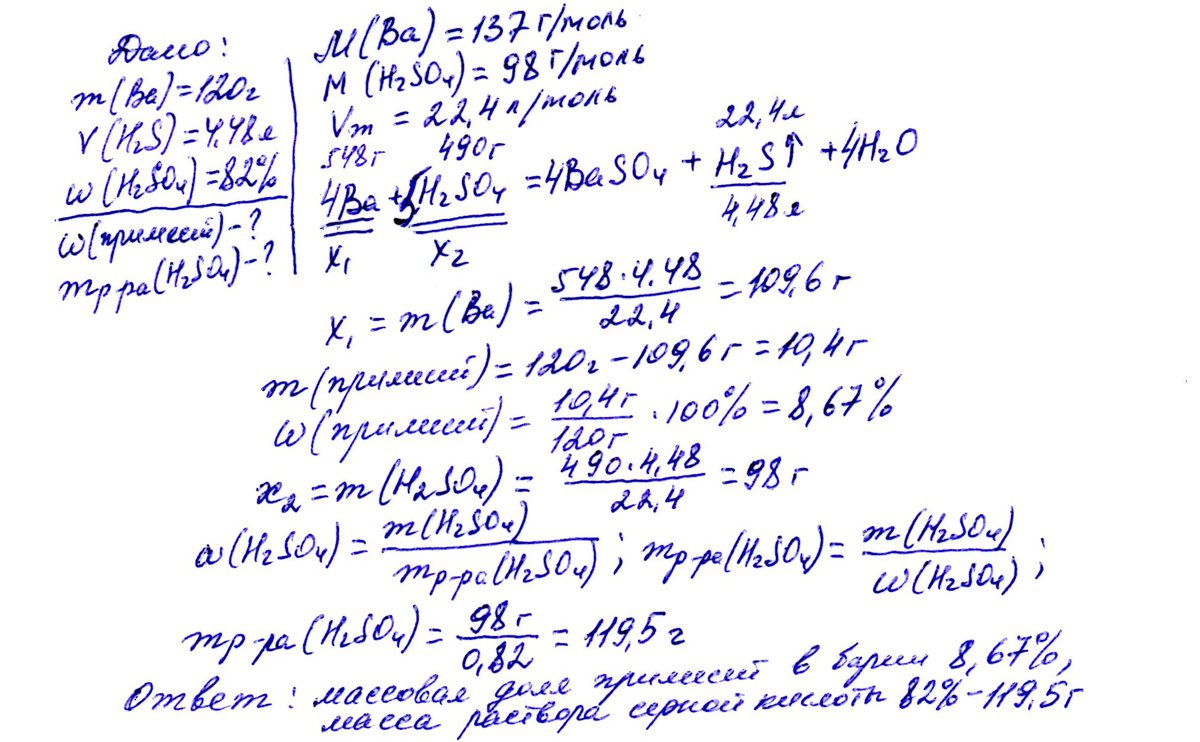 Дано:
m(Ba)=120г
V(H₂S)=4,48л
ω(H₂SO₄)=82%
ω(примесей)-?
mр-ра(H₂SO₄)-?
M(Ba)=137 г/моль
M(H₂SO₄)=98 г/моль
Vm = 22,4 л/моль
548г 490г 22,4л
4Ba + 5H₂SO₄ = 4BaSO₄ + H₂S↑ + 4H₂O
x₁ x₂ 4,48л
x₁ = m(Ba) = 548·4,48 / 22,4 = 109,6 г
m(примесей) = 120г - 109,6 г = 10,4г
ω(примесей) = 10,4г / 120г · 100% = 8,67%
x₂ = m(H₂SO₄) = 490·4,48 / 22,4 = 98 г
ω(H₂SO₄) = m(H₂SO₄) / mр-ра(H₂SO₄) ; mр-ра(H₂SO₄) = m(H₂SO₄) / ω(H₂SO₄) ;
mр-ра(H₂SO₄) = 98 г / 0,82 = 119,5 г
Ответ: массовая доля примесей в барии 8,67%,
масса раствора серной кислоты 82% - 119,5г